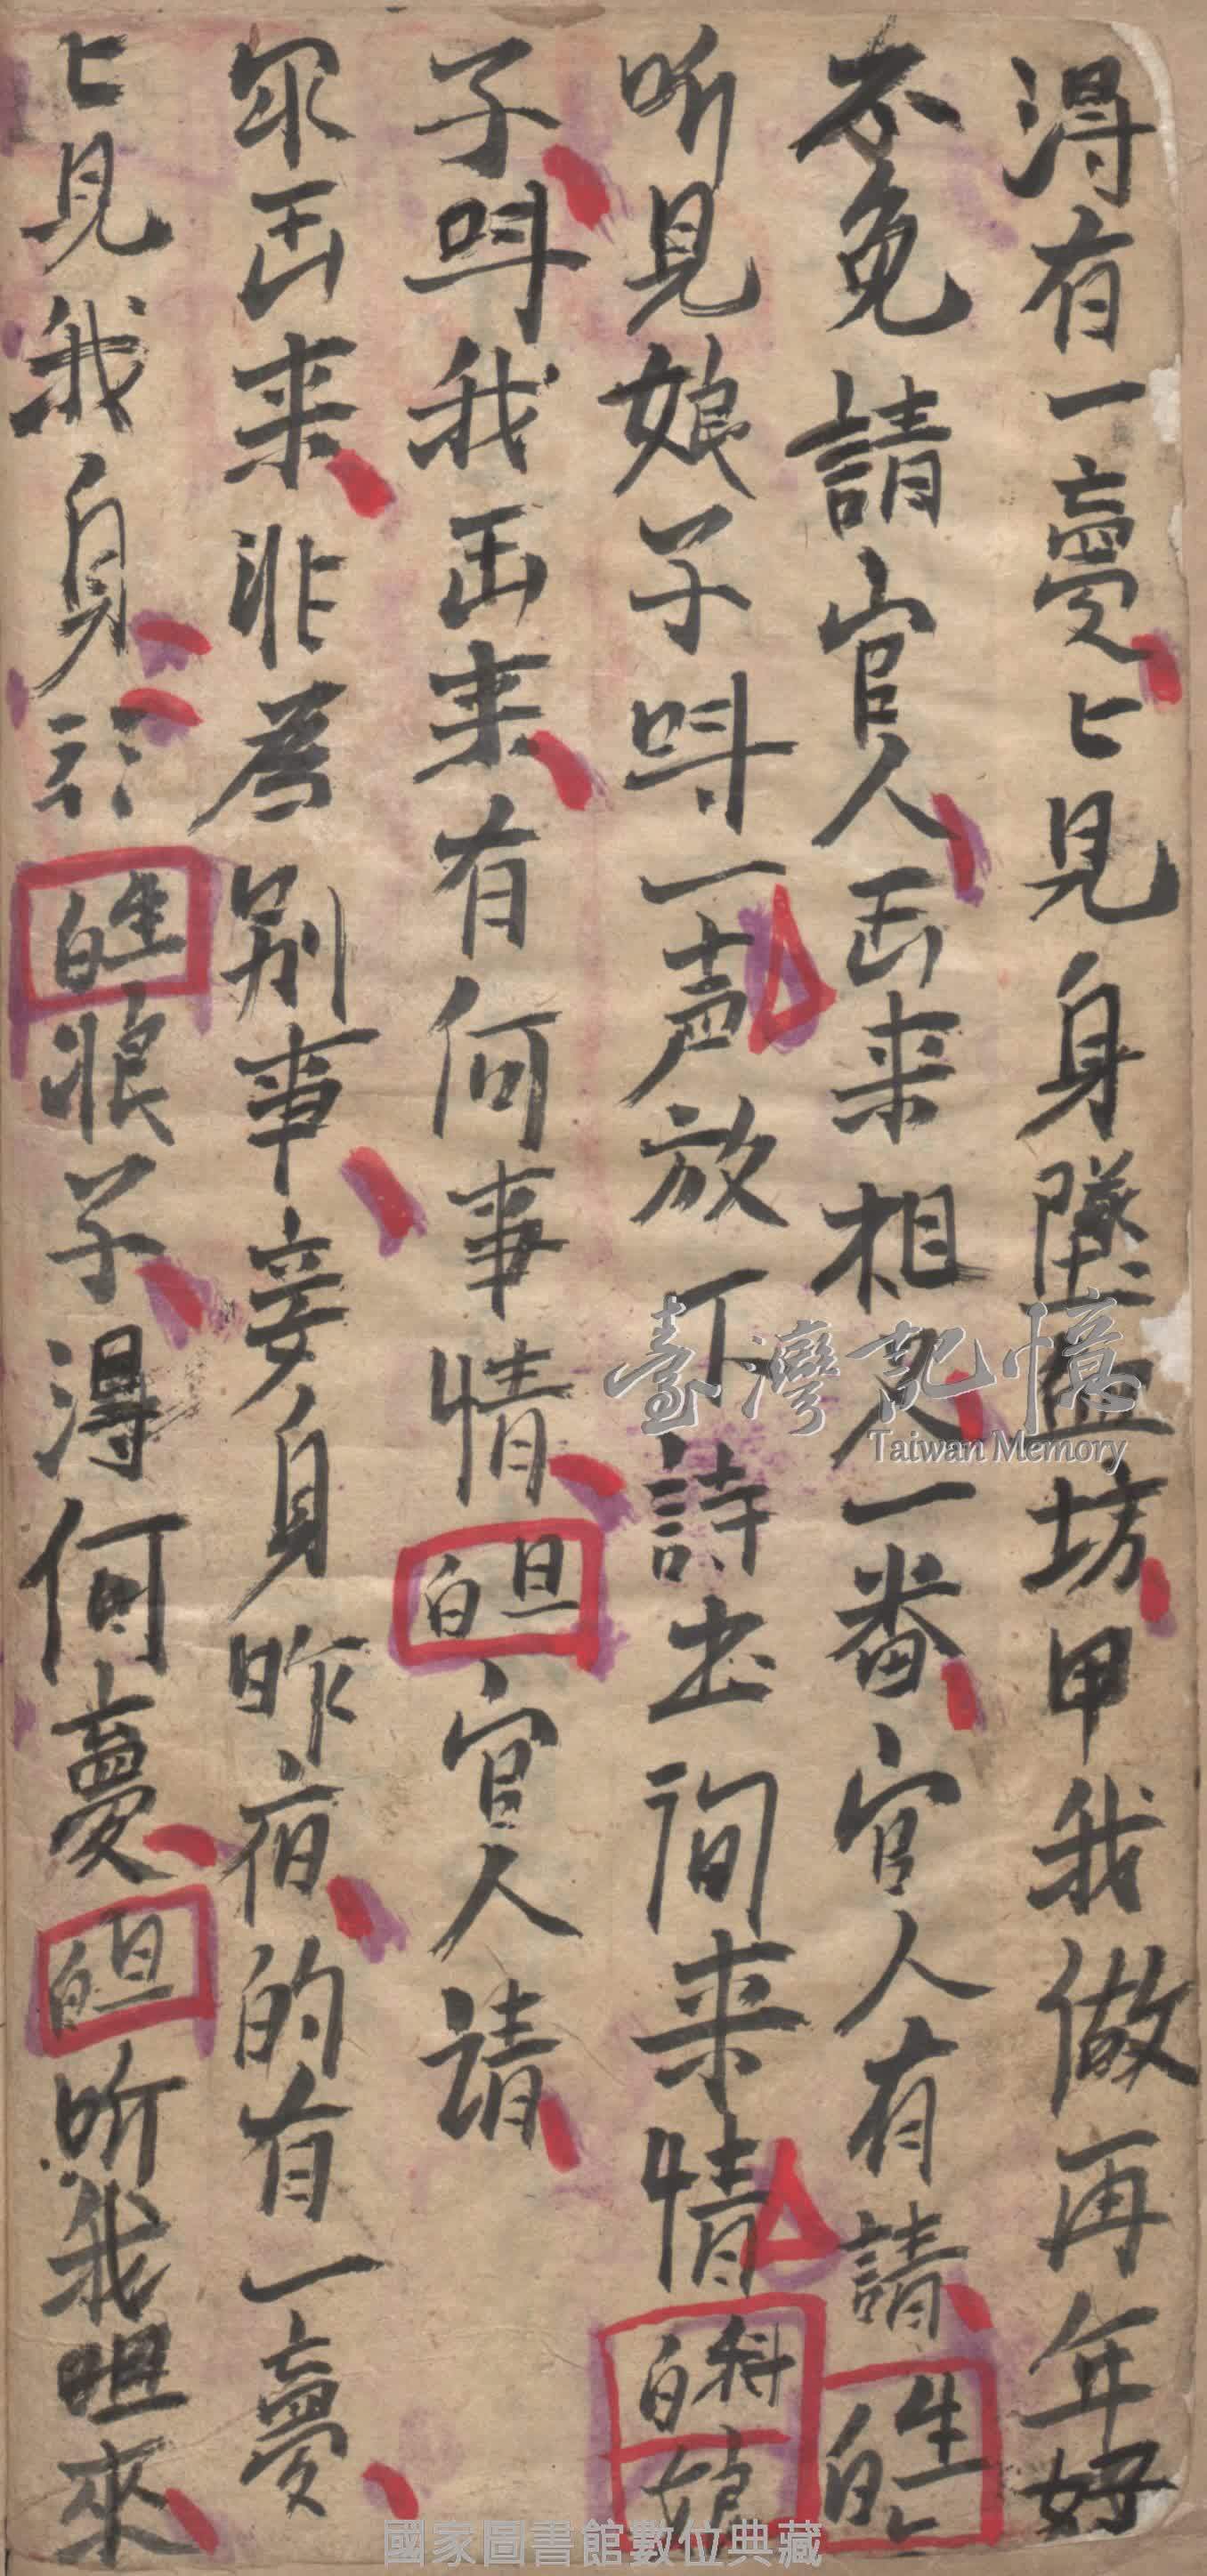 淂有一夢匕見身墜盔坊甲我做再年好
不免請官人出来相人一番官人有請生白
听見娘子呌一声放下詩出问来情科白娘
子呌我出来有何事情旦白官人請
出来非為别事妾身昨夜的有一夢
匕見我身於生白娘子淂何夢旦白听我呾來
臺灣記憶
Taiwan Memory
國家圖書館數位典藏